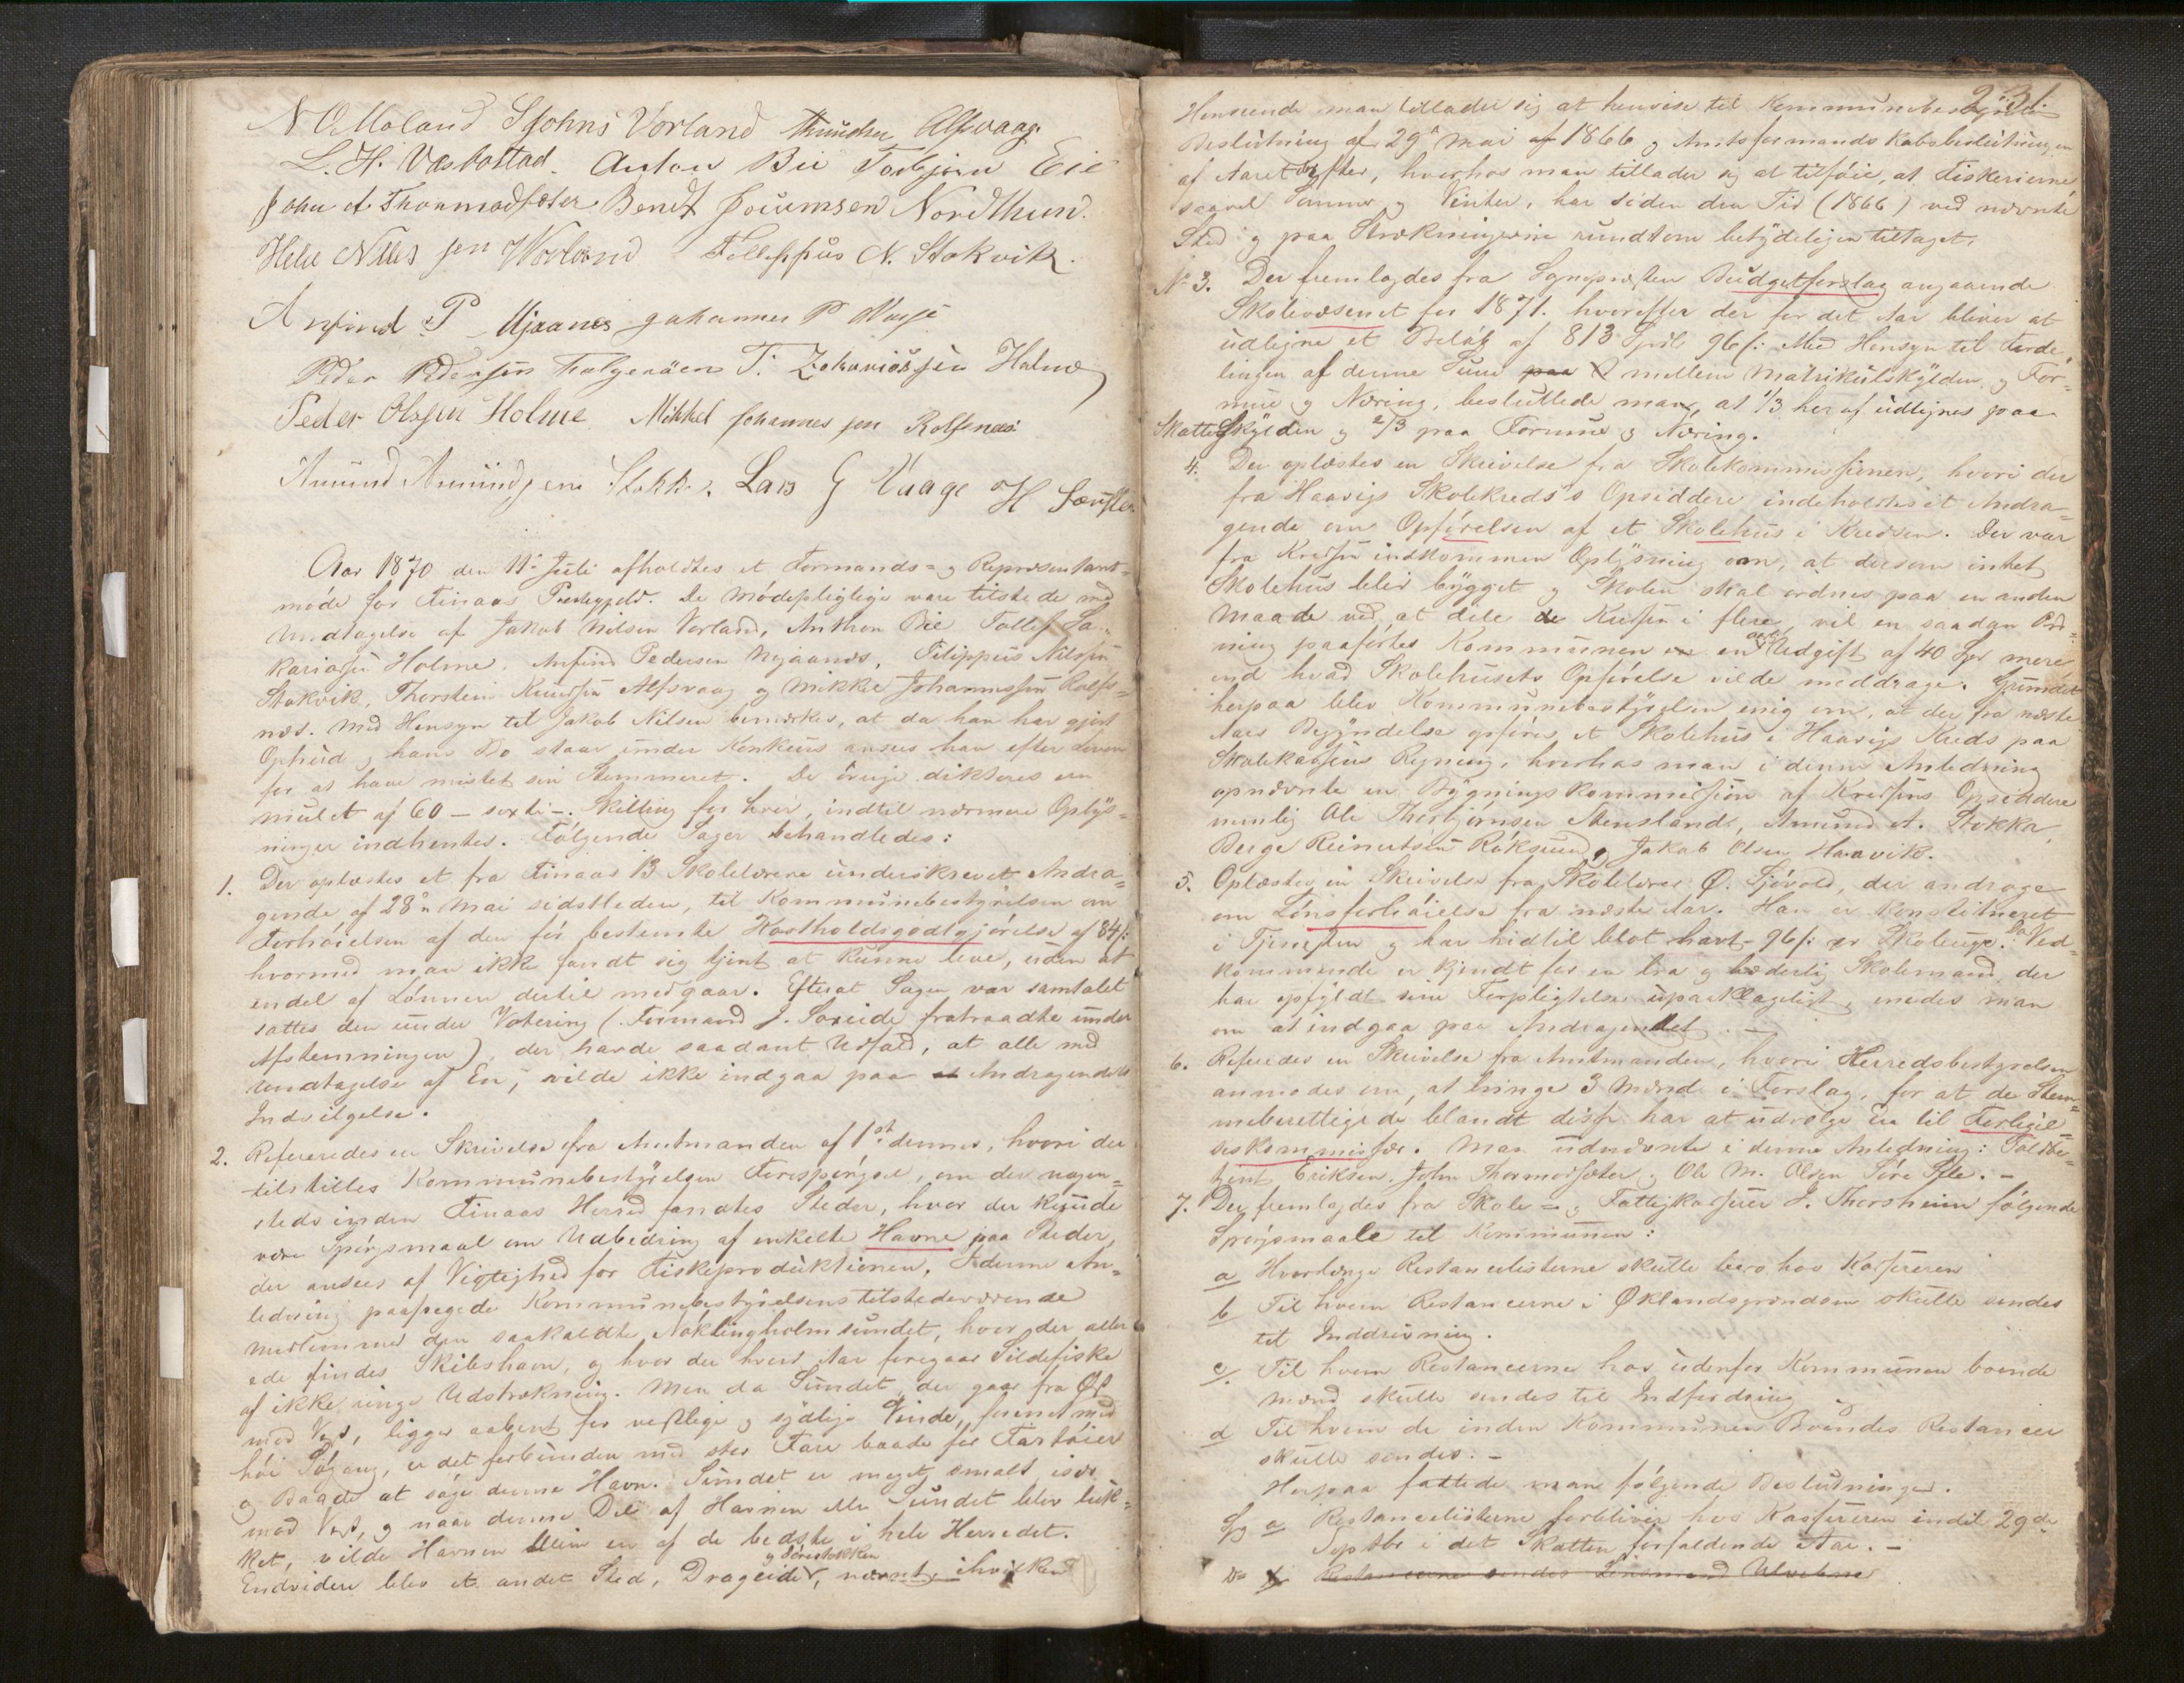 N O Moland S Johns Vorland Knudsen Alfsvaag
L. H. Vasbotstad. Anton Bie Torbjørn Eie
John A. Thormodsæter Bendt Joumsen Nordthun.
Helie Nills sen Worland Fillippus N. Stokvik.
Anfind P Njaanes Johannes P Mosse
Peder Pedersen Folgerøen T. Zakariassen Holme
Peder Olssen Holme. Mikkel Johannes sen Rolfsnæs
Amund Amundsen Stokke. Lars G Vaage H
Aar 1870 den 11te Juli afholdtes et Formands- og Repræsentant-
møde for Finaas Præstegjeld. De Mødepligtige vare tilstede med
Undtagelse af Jakob Nilsen Vorland, Anthon Bie Tollef Za-
kariassen Holme, Anfind Pedersen Njaanes, Filippus Nilssen
Stokvik, Thorstein Knudsen Alfsvaag og Mikkel Johannessen Rolfs-
nes. Med Hensyn til Jakob Nilsen bemærkes, at da han har gjort
Opbud og hans Bo staar under Konkurs ansees han efter Loven
for at have mistet sin Stemmeret. De øvrige dikteres en
Mulct af 60 - sexti - Skilling for hver, indtil nærmere Oplys-
ninger indhentes. Følgende Sager behandledes:
1. Der oplæstes et fra Finaas 13 Skolelærere underskrevet Andra-
gende af 28de Mai sidstleden, til Kommunebestyrelsen om
Forhøielsen af den før bestemte Kostholdsgodtgjørelse af 84 s:
hvormed man ikke fandt sig tjent at kunne leve, uden at
endel af Lønnen dertil medgaar. Efterat Sagen var samtalet
sattes den under Votering (Formand J. Søreide fratraadte under
Afstemningen), der havde saadant Udfald, at alle med
Undtagelse af En, vilde ikke indgaa paa at Andragendets
Indvilgelse.
2. Refereredes en Skrivelse fra Amtmanden af 1st dennes, hvori der
tilstilles Kommunebestyrelsen Forespørgsel, om der nogen-
steds inden Finaas Herred fandtes Steder, hvor der kunde
være Spørgsmaal om Udbedring af enkelte Havne paa Steder,
der ansees af Vigtighed for Fiskeproduktionen. I denne An-
ledning paapegede Kommunebestyrelsens tilstedeværende
Medlemmer den saakaldte Nøklingholmsundet, hvor der aller-
ede findes Skibshavn, og hvor der hvert Aar foregaar Sildefiske
af ikke ringe Udstrækning. Men da Sundet, der gaar fra Øst
mod Vest, ligger aabent for vestlige og sydlige Vinde, forenet med
høi Søgang, er det forbunden med stor Fare baade for Fartøier
og Baade at søge denne Havn. Sundet er meget smalt især
mod Vest, og naar denne Del af Havnen eller Sundet blev luk-
ket, vilde Havnen blive en af de bedste i hele Herredet.
Endvidere blev et andet Sted, Drageidet, og Sørestokken nævnt, i hvilken
231.
Henseende man tillader sig at henvise til Kommunebestyrelsens
Beslutning af 29de Mai af 1866 og Amtsformandskabsbeslutningen
af Aaret efter, hverhos man tillader sig at tilføie, at Fiskerierne
saavel Sommer og Vinter, har siden den Tid (1866) ved nævnte
Sted og paa Strækningerne rundtom betydeligen tiltaget.
No 3. Der fremlagdes fra Sognepresten Budgetforslag angaaende
Skolevæsenet for 1871. hvorefter der for det Aar bliver at
udligne et Beløb af 813 Spd 96 s: Med Hensyn til Forde-
lingen af denne Sum paa mellem Matrikulskylden og For-
mue og Næring, besluttede man, at 1/3 heraf udlignes paa
Matrikulskylden og 2/3 paa Formue og Næring.
4. Der oplæstes en Skrivelse fra Skolekommissionen, hvori der
fra Haavigs Skolekreds's Opsiddere indeholdtes et Andra-
gende om Opførelsen af et Skolehus i Kredsen. Der var
fra Kredsen indkommen Oplysning om, at dersom intet
Skolehus blev bygget og Skolen skal ordnes paa en anden
Maade ved at dele de Kredsen i flere, vil en saadan Ord-
ning paaføre Kommunen en aarl. Udgift af 40 Spd mere
end hvad Skolehusets Opførelse vilde meddrage. Grundet
herpaa blev Kommunebestyrelsen enig om, at der fra næste
Aars Begyndelse opføres et Skolehus i Haavigs Kreds paa
Skolekassens Regning, hverhos man i denne Anledning
opnævnte en Bygningskommission af Kredsens Opsiddere
nemlig Ole Thorbjørnsen Stensland, Amund A. Stokka,
Berge Reinertsen Røksund og Jakob Olsen Haavik.
5. Oplæstes en Skrivelse fra Skolelærer Ø. Sjøvold, der androge
om Lønsforhøielse fra næste Aar. Han er konstitueret
i Tjenesten og har hidtil blot havt 96 s: pr Skoleuge. Da Ved-
kommende er kjendt for en bra og hæderlig Skolemand der
har opfyldt sine Forpligtelser upaaklageligt, enedes man
om at indgaa paa Andragendet. -
6. Refereredes en Skrivelse fra Amtmanden, hvori Herredsbestyrelsen
anmodes om, at bringe 3 Mænd i Forslag, for at de Stem-
meberettigede blandt disse har at udvælge En til Forligel-
seskommissær. Man udnævnte i denne Anledning: Toldbe-
tjent Eriksen. John Thormodsæter og Ole M. Olsen Føre Fyle. -
7. Der fremlagdes fra Skole- og Fattigkasserer J. Thorsheim følgende
Spørgsmaale til Kommunen:
a Hvorlenge Restancelisterne skulle bero hos Kassereren
b Til hvem Restancerne i Øklandsgrændsen skulle sendes
til Inddrivning.
c Til hvem Restancerne hos udenfor Kommunen boende
Mænd skulle sendes til Indfordring og
d Til hvem de inden Kommunen Boendes Restancer
skulle sendes. -
Herpaa fattede man følgende Beslutninger.
Sp a Restancelisterne forbliver hos Kassereren indtil 29de
Septbr i det Skatten forfaldende Aar. -
Restancerne sendes Lensmand Ulvebne